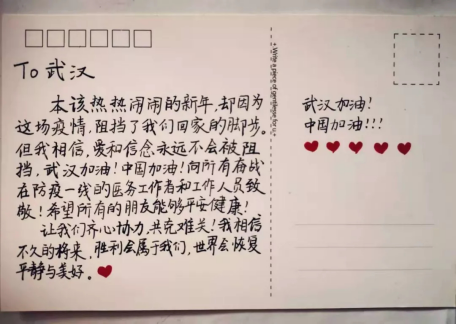 To 武汉
本该热热闹闹的新年,却因为
这场疫情,阻挡了我们回家的脚步。
但我相信,爱和信念永远不会被阻
挡,武汉加油!中国加油!向所有奋战
在防疫一线的医务工作者和工作人员致
敬!希望所有的朋友能够平安健康!
让我们齐心协力,共克难关!我相信
不久的将来,胜利会属于我们,世界会恢复
平静与美好。
武汉加油!
中国加油!!!